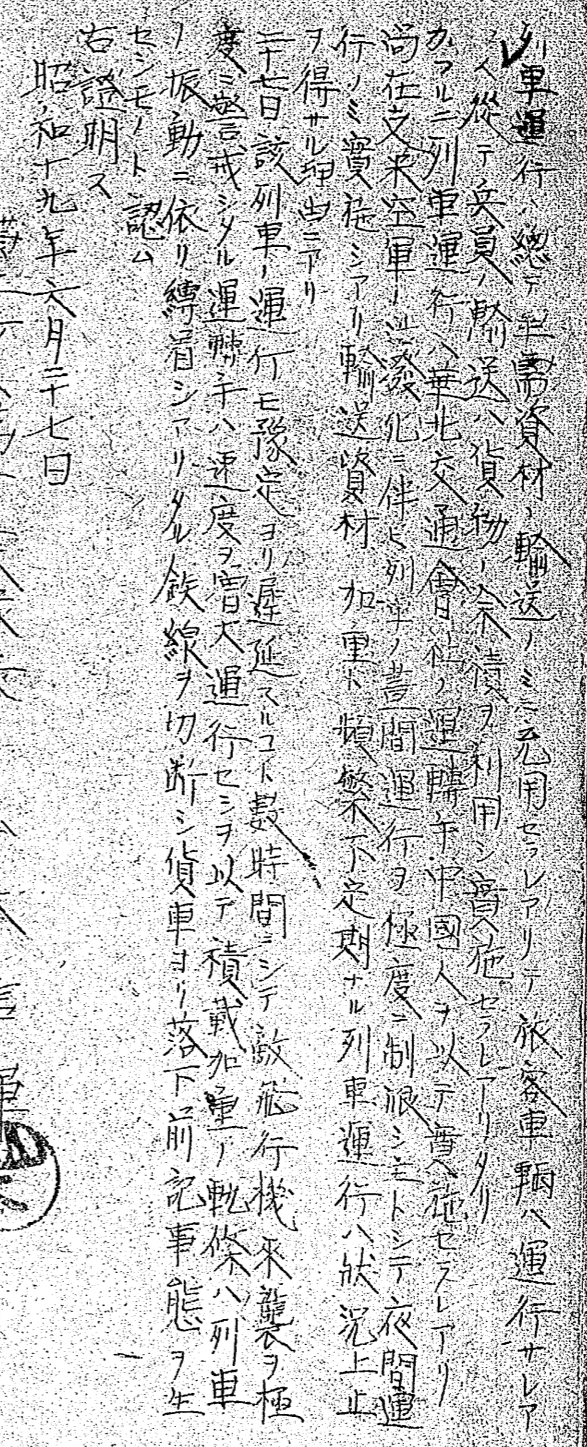 列車運行ハ總テ軍需資材ノ輸送ノミニ充用セラレアリテ旅客車輛ハ運行サレア
ス從テ兵員ノ輸送ハ貨物ノ余積ヲ利用シ實施セラレアリタリ
カヽルニ列車運行ハ華北交通會社ノ運轉手中國人ヲ以テ實施セラレアリ
尚在支米空軍ノ活發化ニ伴ヒ列車ノ晝間運行ヲ極度ニ制限シ主トシテ夜間運
行ノミ實施シアリ輸送資材ノ加重ト頻繁不定期ナル列車運行ハ狀況上止
ヲ得サル理由ニアリ
二十七日該列車ノ運行モ豫定ヨリ遲延スルコト數時間ニシテ敵飛行機來襲ヲ極
度ニ警戒シタル運轉手ハ速度ヲ增大運行セシヲ以テ積載加重ノ軌條ハ列車
ノ振動ニ依リ縛着シアリタル鉄線ヲ切斷シ貨車ヨリ落下前記事態ヲ生
セシモノト認ム
右證明ス
昭和十九年六月二十七日